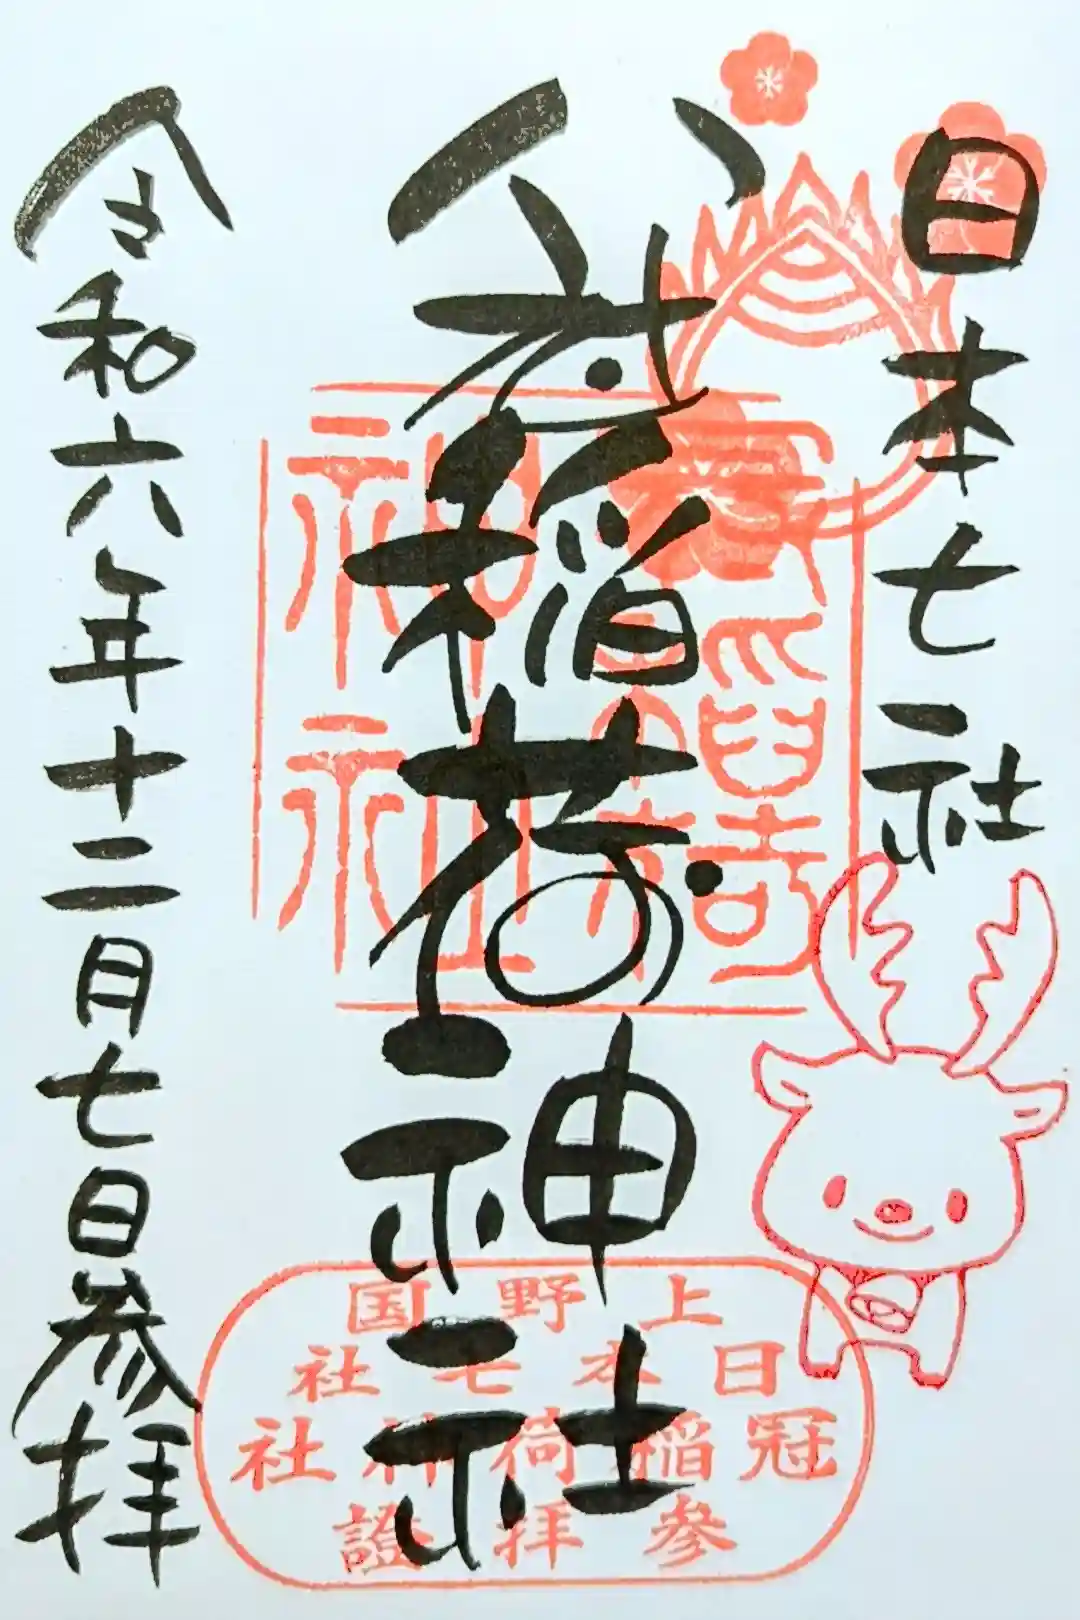 日本七社
冠稲荷神社
令和六年十二月七日参拝
冠稲荷神社
上野国
日本七社
冠稲荷神社
参拝證